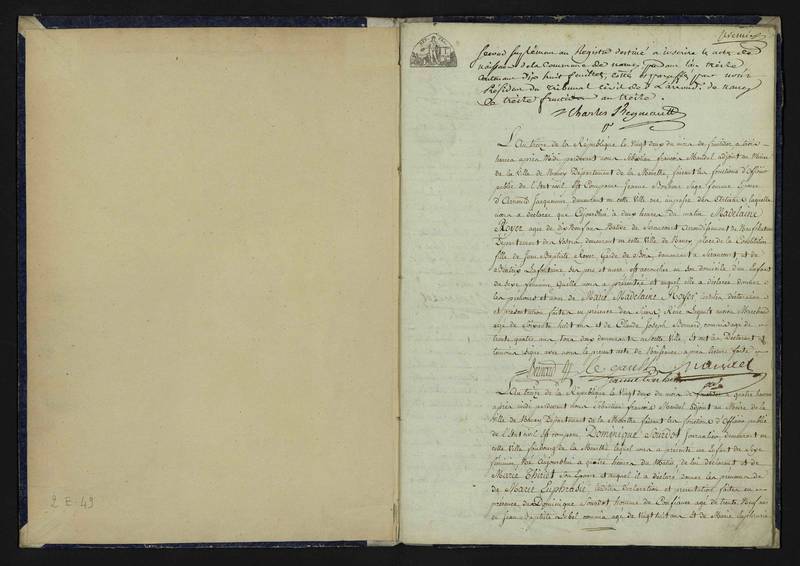 premier
Second supplément au Registre destiné à inscrire les actes de
naissance de la Commune de nancy pendant l'an treize
contenant dix huit feuillets, cottés et paraphés par nous
Président du Tribunal Civil de l'arrond.t de nancy
Le treize fructidor an treize.
Charles Regneault
pt
L'An treize de la République le vingt deux du mois de fructidor à trois
heures après midi pardevant nous Sébastien françois Mandel adjoint au Maire
de la Ville de Nancy Département de la Meurthe, faisant les fonctions d'Officier
public de l'Etat civil Est Comparue jeanne femme Epouse
d' Jacquemin, demeurant en cette Ville rue laquelle
nous a déclaré que Cejourd'hui à deux heures du matin Madelaine
Royer agée de dix Arrondissement de Neufchateau
Département des Vosges, demeurant en cette Ville de Nancy, place de la
fille de Jean Baptiste Royer de Bois, demeurant à et de
Lafontaine ses pere et mere est accouchée en son domicile d'un Enfant
de sexe féminin quelle nous a présentée et auquel elle a déclaré donner
les prénoms et nom de Marie Madelaine Royer lesdites déclaration
et présentation faites en presence des Sieurs René Legault Marchand
agé de soixante huit ans et de Claude Joseph Bernard commis agé de
trente quatre ans tous deux demeurants en cette Ville, Et ont les Déclarant et
témoins signé avec nous le présent acte de Naissance après lecture faite
Bernard le gault Mandel
L'An treize de la République le vingt deux du mois de fructidor à quatre heures
après midi pardevant nous Sébastien françois Mandel Adjoint au Maire de la
Ville de Nancy Département de la Meurthe faisant les fonctions d'Officier public
de l'Etat civil Est comparu Dominique Sourdot Journalier demeurant en
cette Ville faubourg de la Meurthe lequel nous a présenté un Enfant de Sexe
féminin, Né Aujourdhui à quatre heures du Matin, de lui déclarant et de
Marie Thiriot Son Epouse et auquel il a déclaré donner les prénoms de
de Marie Euphrasie lesdites déclaration et présentation faites en
présence de Dominique Sourdot homme de Confiance agé de trente Neuf ans
et jean baptiste commis agé de vingt huit ans Et de Marie
2 E-49